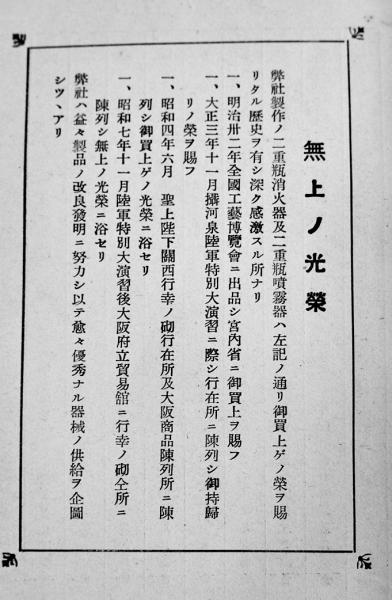 無上ノ光榮
弊社製作ノ二重瓶消火器及二重瓶噴霧器ハ左記ノ通リ御買上ゲノ榮ヲ賜
リタル歷史ヲ有シ深ク感激スル所ナリ
一、明治卅二年全國工藝博覽會ニ出品シ宮內省ニ御買上ヲ賜フ
一、大正三年十一月攝河泉陸軍特別大演習ニ際シ行在所ニ陳列シ御持歸
リノ榮ヲ賜フ
一、昭和四年六月　聖上陛下關西行幸ノ砌行在所及大阪商品陳列所ニ陳
列シ御買上ゲノ光榮ニ浴セリ
一、昭和七年十一月陸軍特別大演習後大阪府立貿易舘ニ行幸ノ砌仝所ニ
陳列シ無上ノ光榮ニ浴セリ
弊社ハ益々製品ノ改良發明ニ努力シ以テ愈々優秀ナル器械ノ供給ヲ企圖
シツヽアリ